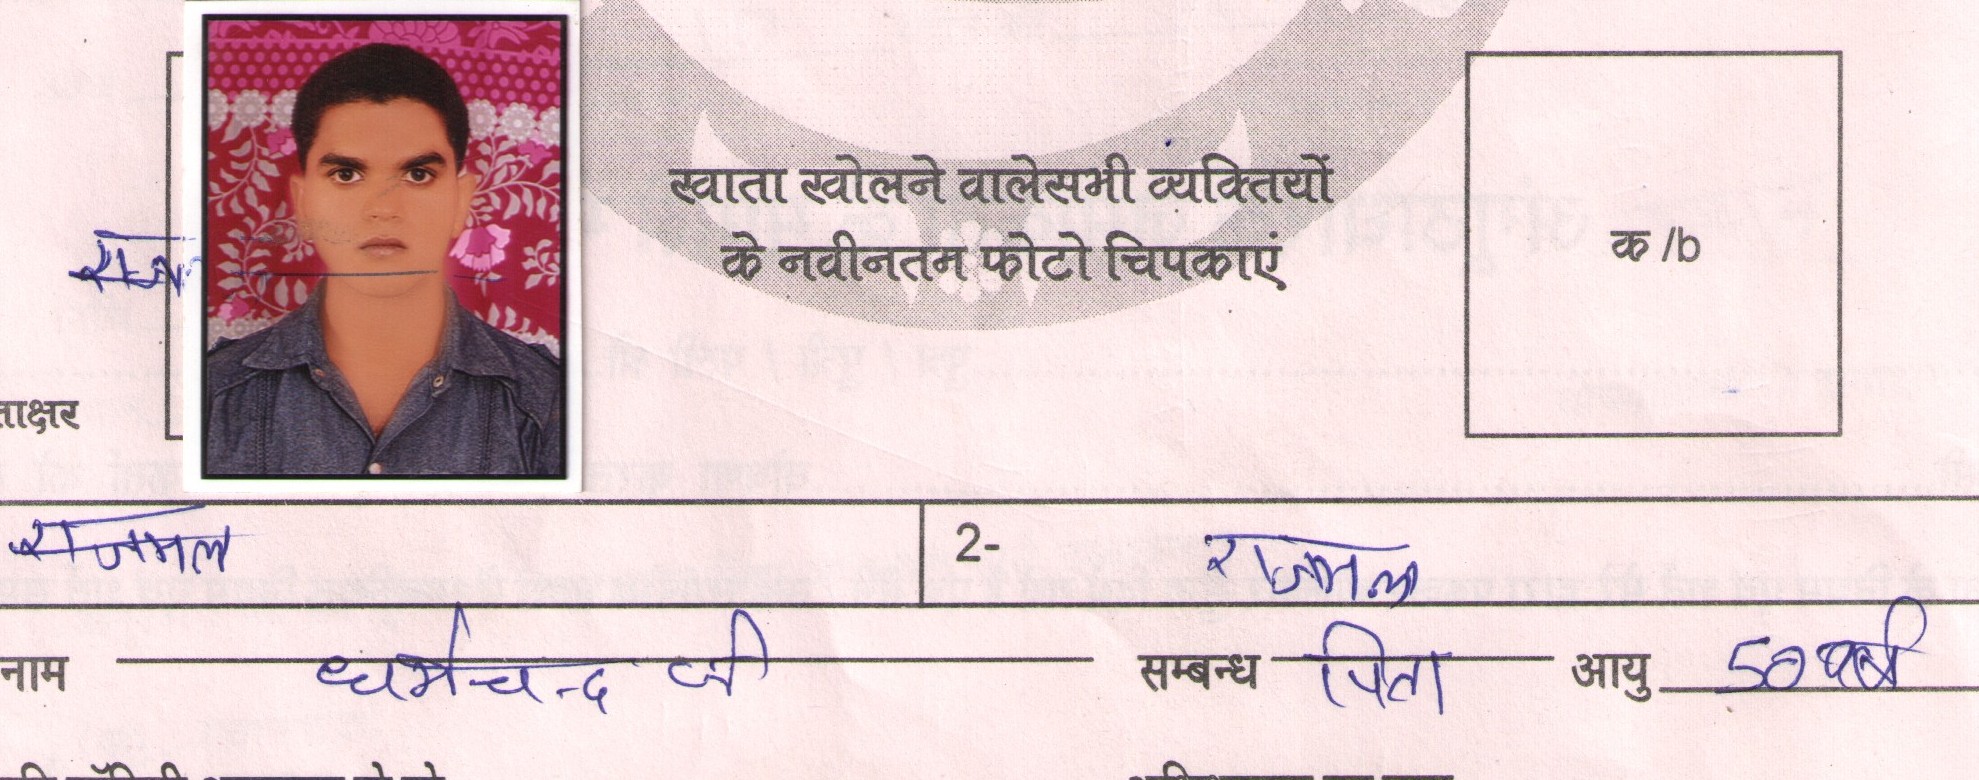 खाता खोलने वालेसभी व्यक्तियों
के नवीनतम फोटो चिपकाएं
क /b
राजम
ताक्षर
राजमल
2- राजमल
नाम धर्मचन्द जी सम्बन्ध पिता आयु 50 वर्ष